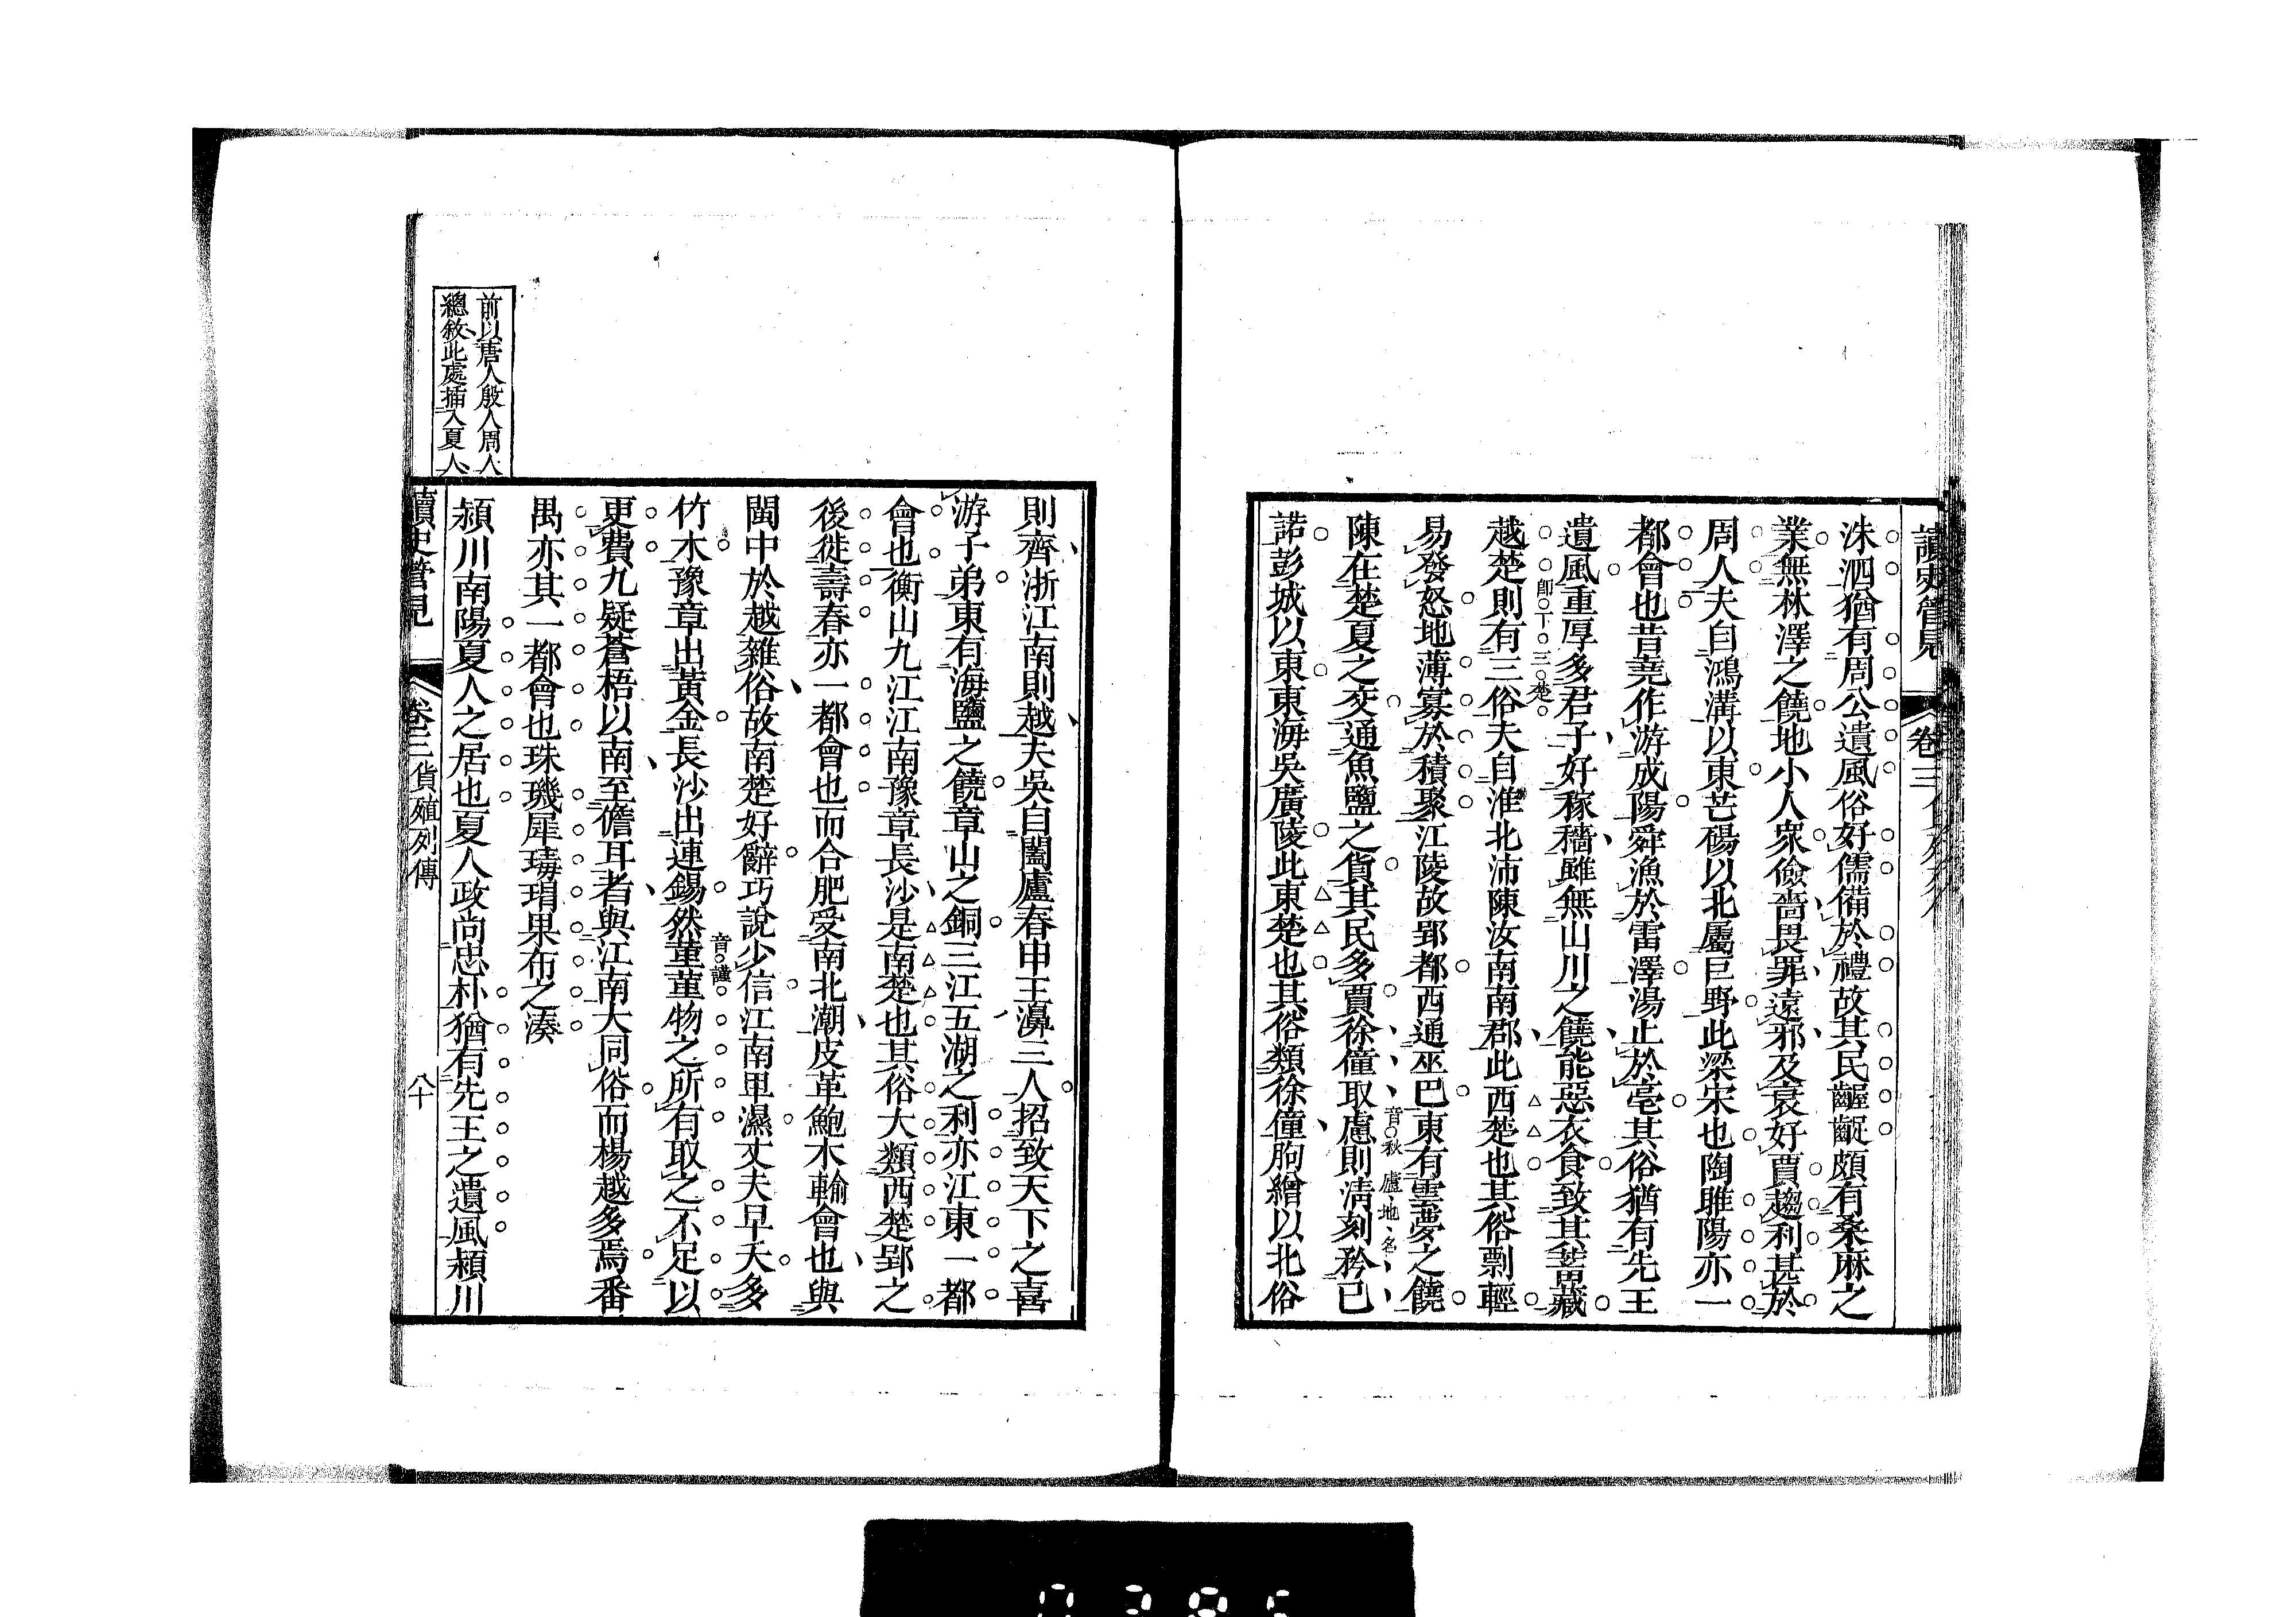 讀史管見
卷三
洙泗猶有周公遺風俗好儒備於禮故其民齷齪頗有桑麻之
業無林澤之饒地小人衆儉嗇畏罪遠邪及衰好賈趨利甚於
周人夫自鴻溝以東芒碭以北屬巨野此梁宋也陶睢陽亦一
都會也昔堯作游成陽舜漁於雷澤湯止於亳其俗猶有先王
遺風重厚多君子好稼穡雖無山川之饒能惡衣食致其蓄藏
即下三楚
越楚則有三俗夫自淮北沛陳汝南南郡此西楚也其俗剽輕
易發怒地薄寡於積聚江陵故郢都西通巫巴東有雲夢之饒
音秋 慮地名
陳在楚夏之交通魚鹽之貨其民多賈徐僮取慮則清刻矜己
諾彭城以東東海吳廣陵此東楚也其俗類徐僮朐繒以北俗
則齊浙江南則越夫吳自闔廬春申王濞三人招致天下之喜
游子弟東有海鹽之饒章山之銅三江五湖之利亦江東一都
會也衡山九江江南豫章長沙是南楚也其俗大類西楚郢之
後徙壽春亦一都會也而合肥受南北潮皮革鮑木輸會也與
閩中於越雜俗故南楚好辭巧說少信江南卑濕丈夫早夭多
音謹
竹木豫章出黃金長沙出連錫然堇堇物之所有取之不足以
更費九疑蒼梧以南至儋耳者與江南大同俗而楊越多焉番
禺亦其一都會也珠璣犀瑇瑁果布之湊
前以唐人殷人周人
總敘此處插入夏人
潁川南陽夏人之居也夏人政尚忠朴猶有先王之遺風潁川
讀史管見
卷三 貨殖列傳
八十